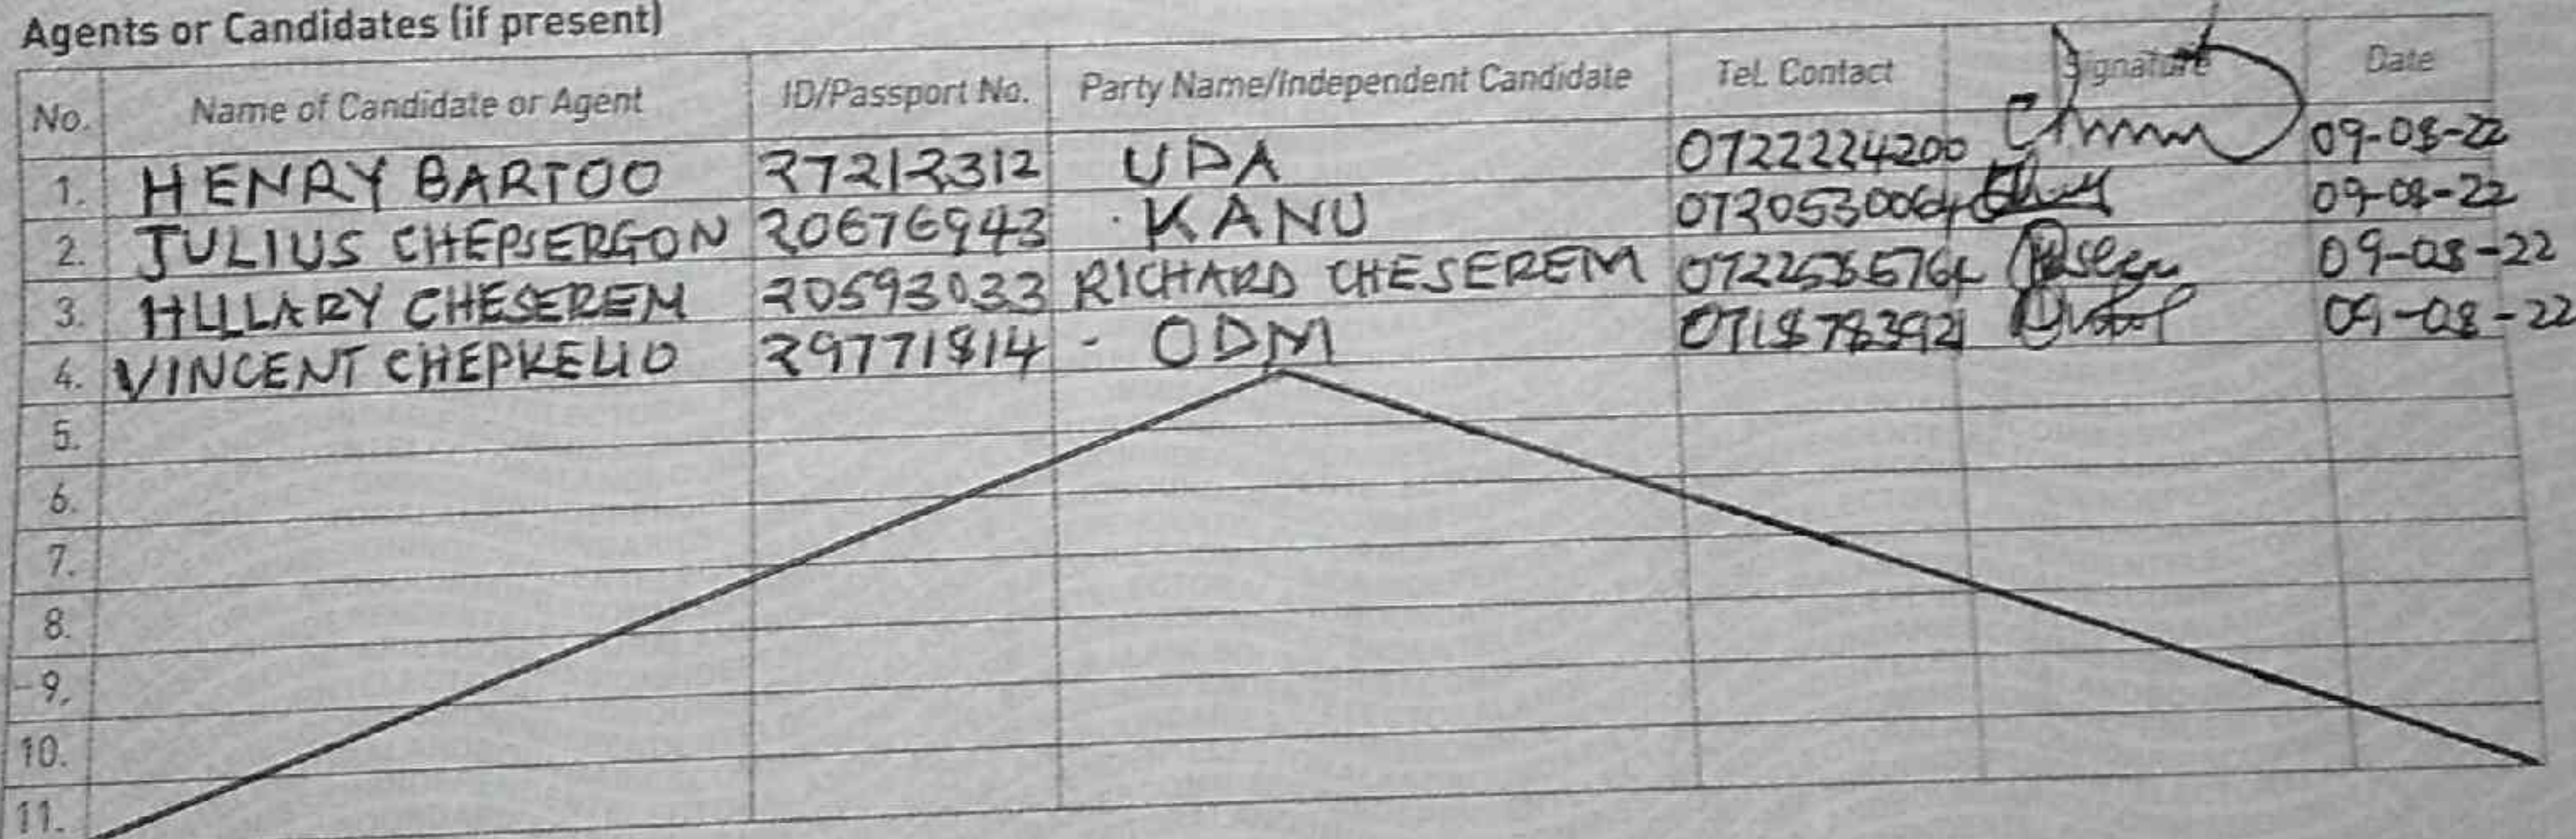 Agents or Candidates (if present)
No. Name of Candidate or Agent ID/Passport No. Party Name/Independent Candidate Tel. Contact Signature Date
1. HENRY BARTOO 27212312 UDA 0722224200 09-08-22
2. JULIUS CHEPSERGON 20676943 KANU 0720530064 09-08-22
3. HILLARY CHESEREM 20593033 RICHARD CHESEREM 09-08-22
4. VINCENT CHEPKELIO 29771814 - ODM 0718783921 09-08-22
5.
6.
7.
8.
9.
10.
11.